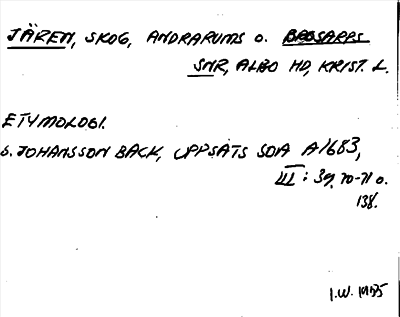 JÄREN, SKOG, ANDRARUMS O. BRÖSARPS
SNR, ALBO HD, KRIST. L.
ETYMOLOGI.
S. JOHANSSON BACK, UPPSATS SOA A1683,
III: 39, 70-71 O.
138.
I.W. 1955